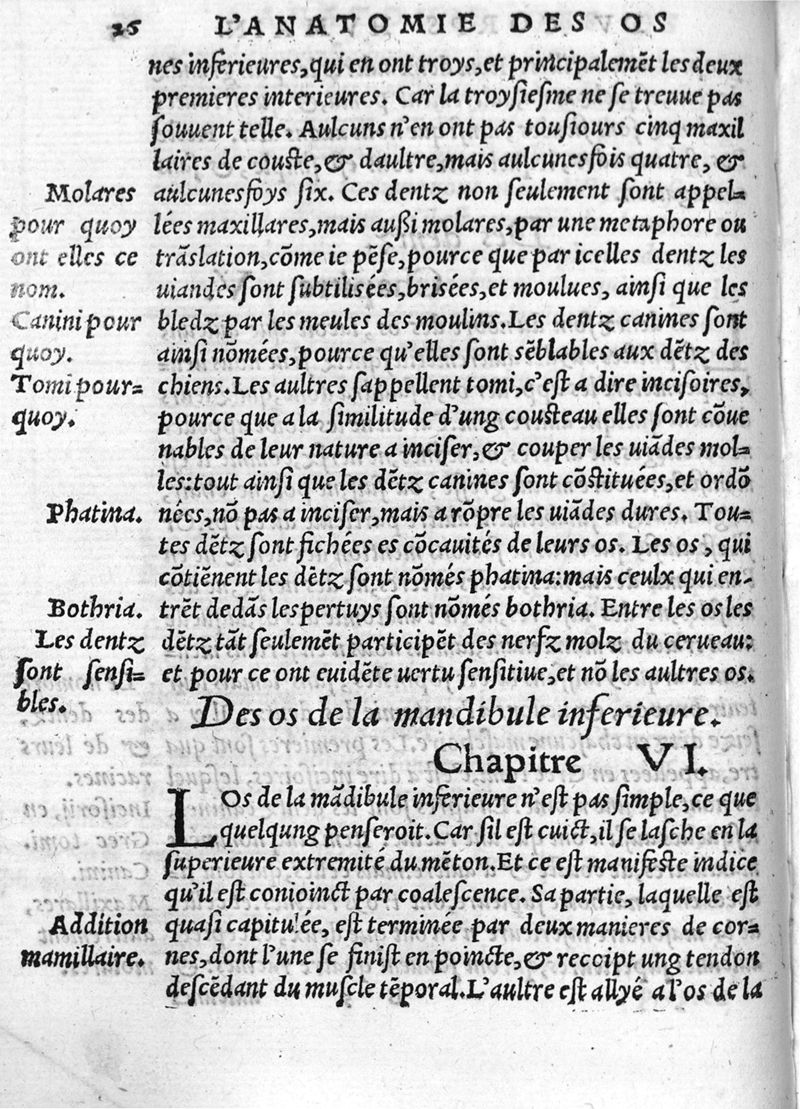 26 L'ANATOMIE DES OS
nes inferieures,qui en ont troys,et principalemēt les deux
premieres interieures. Car la troysiesme ne se treuue pas
souuent telle. Aulcuns n'en ont pas tousiours cinq maxil
laires de couste,& daultre,mais aulcunesfois quatre, &
Molares
aulcunesfoys six. Ces dentz non seulement sont appel=
pour quoy
lées maxillares,mais außi molares,par une metaphore ou
ont elles ce
trāslation,cōme ie pēse,pource que par icelles dentz les
nom.
uiandes sont subtilisées,brisées,et moulues, ainsi que les
Canini pour
bledz par les meules des moulins.Les dentz canines sont
quoy.
ainsi nōmées,pource qu'elles sont sēblables aux dētz des
Tomi pour=
chiens.Les aultres sappellent tomi,c'est a dire incisoires,
quoy.
pource que a la similitude d'ung cousteau elles sont cōue
nables de leur nature a inciser,& couper les uiādes mol=
les:tout ainsi que les dētz canines sont cōstituées,et ordō
Phatina.
nées,nō pas a inciser,mais a rōpre les uiādes dures. Tou=
tes dētz sont fichées es cōcauités de leurs os. Les os, qui
cōtiēnent les dētz sont nōmés phatina:mais ceulx qui en-
Bothria.
trēt dedās lespertuys sont nōmés bothria. Entre les os les
Les dentz
dētz tāt seulemēt participēt des nerfz molz du cerueau:
sont sensi=
et pour ce ont euidēte uertu sensitiue,et nō les aultres os.
bles.
Des os de la mandibule inferieure.
Chapitre VI.
LOs de la mādibule inferieure n'est pas simple,ce que
quelqung penseroit.Car sil est cuict,il se lasche en la
superieure extremité du mēton.Et ce est manifeste indice
qu'il est conioinct par coalescence. Sa partie, laquelle est
Addition
quasi capitulée, est terminée par deux manieres de cor=
mamillaire.
nes,dont l'une se finist en poincte,& reccipt ung tendon
descēdant du muscle tēporal.L'aultre est allyé a l'os de la